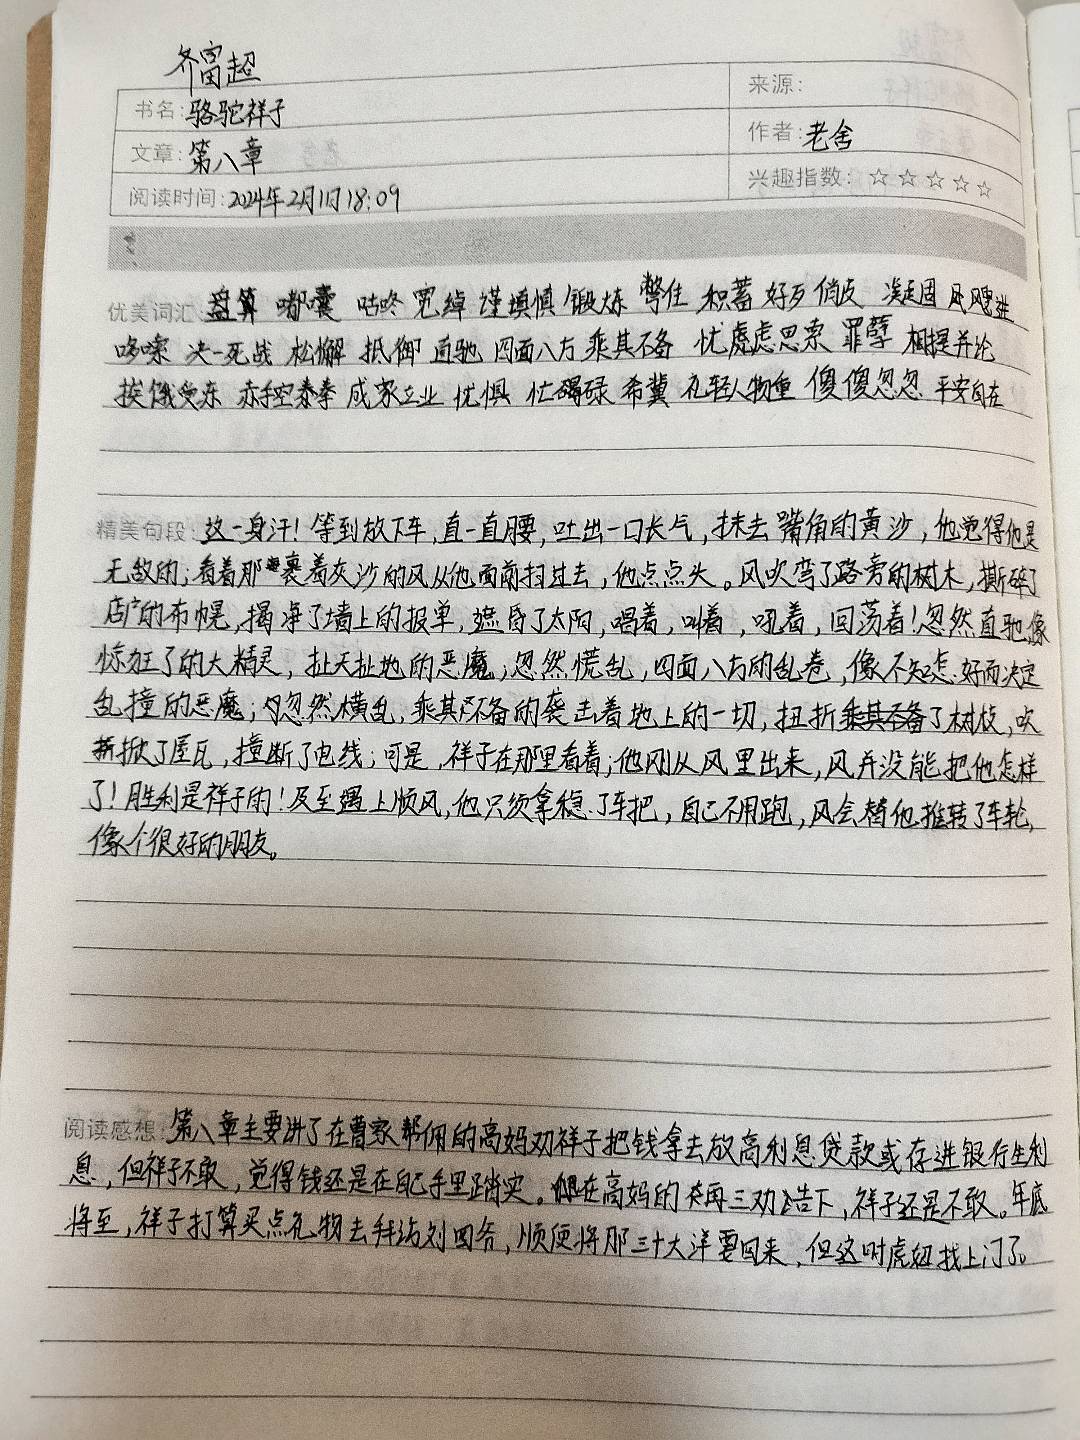 齐富超
书名:骆驼祥子
来源:
文章:第八章
作者:老舍
阅读时间:2024年2月1日18:09
兴趣指数:☆☆☆☆☆
优美词汇 盘算 嘟囔 咕咚 宽绰 谨慎 锻炼 憋住 积蓄 好歹 俏皮
哆嗦 决一死战 松懈 抵御 直驰 四面八方 乘其不备 忧虑 思索 罪孽 相提并论
挨饿受冻 赤手空拳 成家立业 忧惧 忙碌 希冀 礼轻人物重 傻傻忽忽 平安自在
精美句段:这一身汗!等到放下车,直一直腰,吐出一口长气,抹去嘴角的黄沙,他觉得他是
无敌的;看着那裹着灰沙的风从他面前扫过去,他点点头。风吹弯了路旁的树木,撕碎了
店户的布幌,揭净了墙上的报单,遮昏了太阳,唱着,叫着,吼着,回荡着!忽然直驰,像
惊狂了的大精灵,扯天扯地的恶魔;忽然慌乱,四面八方的乱卷,像不知怎好而决定
乱撞的恶魔;忽然横乱,乘其不备的袭击着地上的一切,扭折了树枝,吹
掀了屋瓦,撞断了电线;可是,祥子在那里看着;他刚从风里出来,风并没能把他怎样
了!胜利是祥子的!及至遇上顺风,他只须拿稳了车把,自己不用跑,风会替他推转了车轮,
像个很好的朋友。
阅读感想:第八章主要讲了在曹家帮佣的高妈劝祥子把钱拿去放高利息贷款或存进银行生利
息,但祥子不敢,觉得钱还是在自己手里踏实。在高妈的再三劝告下,祥子还是不敢。年底
将至,祥子打算买点礼物去拜访刘四爷,顺便将那三十大洋要回来,但这时虎妞找上门了。